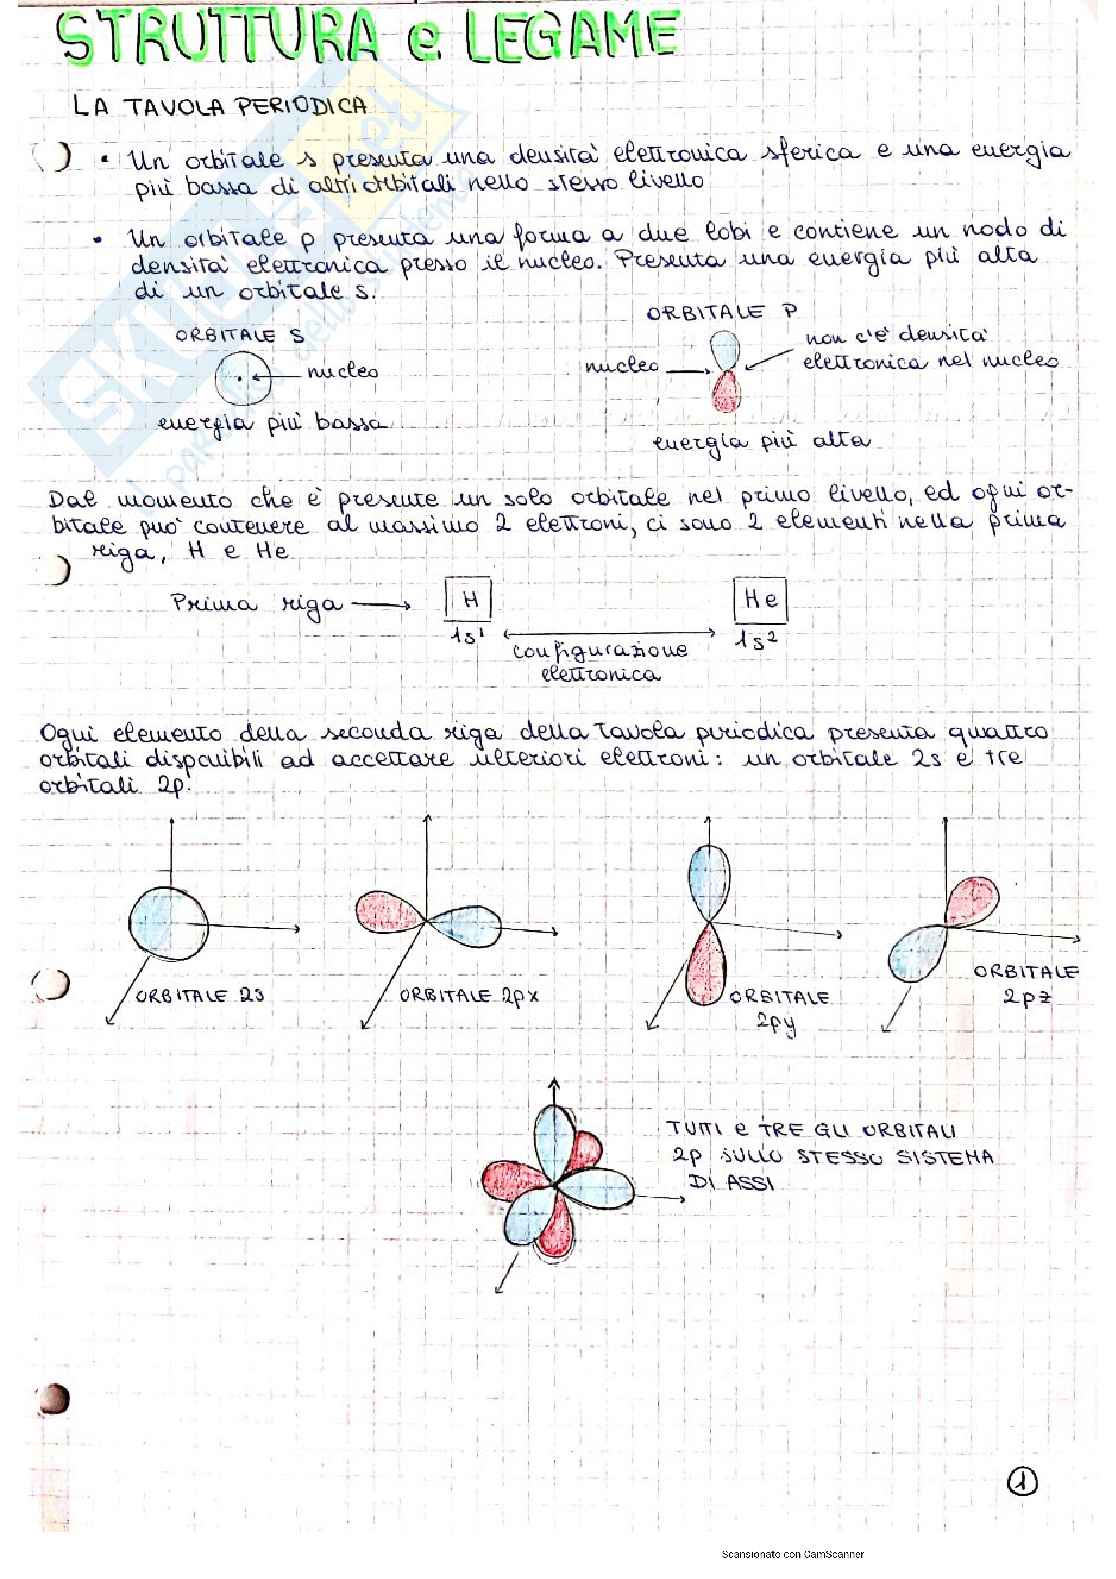 STRUTTURA e LEGAME
LA TAVOLA PERIODICA
• Un orbitale s presenta una densità elettronica sferica e una energia
più bassa di altri orbitali nello stesso livello
• Un orbitale p presenta una forma a due lobi e contiene un nodo di
densità elettronica presso il nucleo. Presenta una energia più alta
di un orbitale s.
ORBITALE S
nucleo
energia più bassa
ORBITALE P
nucleo
non c'è densità
elettronica nel nucleo
energia più alta
Dal momento che è presente un solo orbitale nel primo livello, ed ogni or-
bitale può contenere al massimo 2 elettroni, ci sono 2 elementi nella prima
riga, H e He
Prima riga → H He
1s¹ 1s²
configurazione
elettronica
Ogni elemento della seconda riga della tavola periodica presenta quattro
orbitali disponibili ad accettare ulteriori elettroni: un orbitale 2s e tre
orbitali 2p.
ORBITALE 2s
ORBITALE 2px
ORBITALE
2py
ORBITALE
2pz
TUTTI e TRE GLI ORBITALI
2p SULLO STESSO SISTEMA
DI ASSI
1
Scansionato con CamScanner